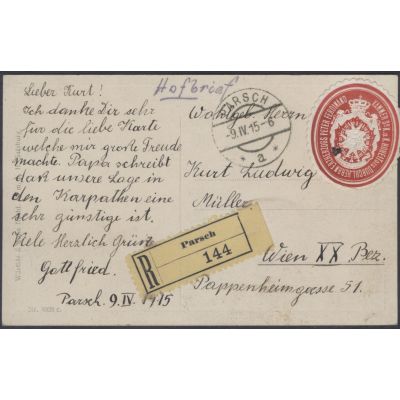 Hofbrief
Lieber Kurt!
Ich danke Dir sehr
für die liebe Karte
welche mir große Freude
machte. Papa schreibt
daß unsere Lage in
den Karpathen eine
sehr günstige ist.
Viele Herzlich Grüße
Gottfried.
Parsch. 9.IV 1915
PARSCH
-9.IV.15-6
* a *
Wohlgeb. Herrn
Kurt Ludwig
Müller
Wien XX Bez.
Pappenheimgasse 51.
R
Parsch
144
ERZHERZOGS PETER FERDINAND